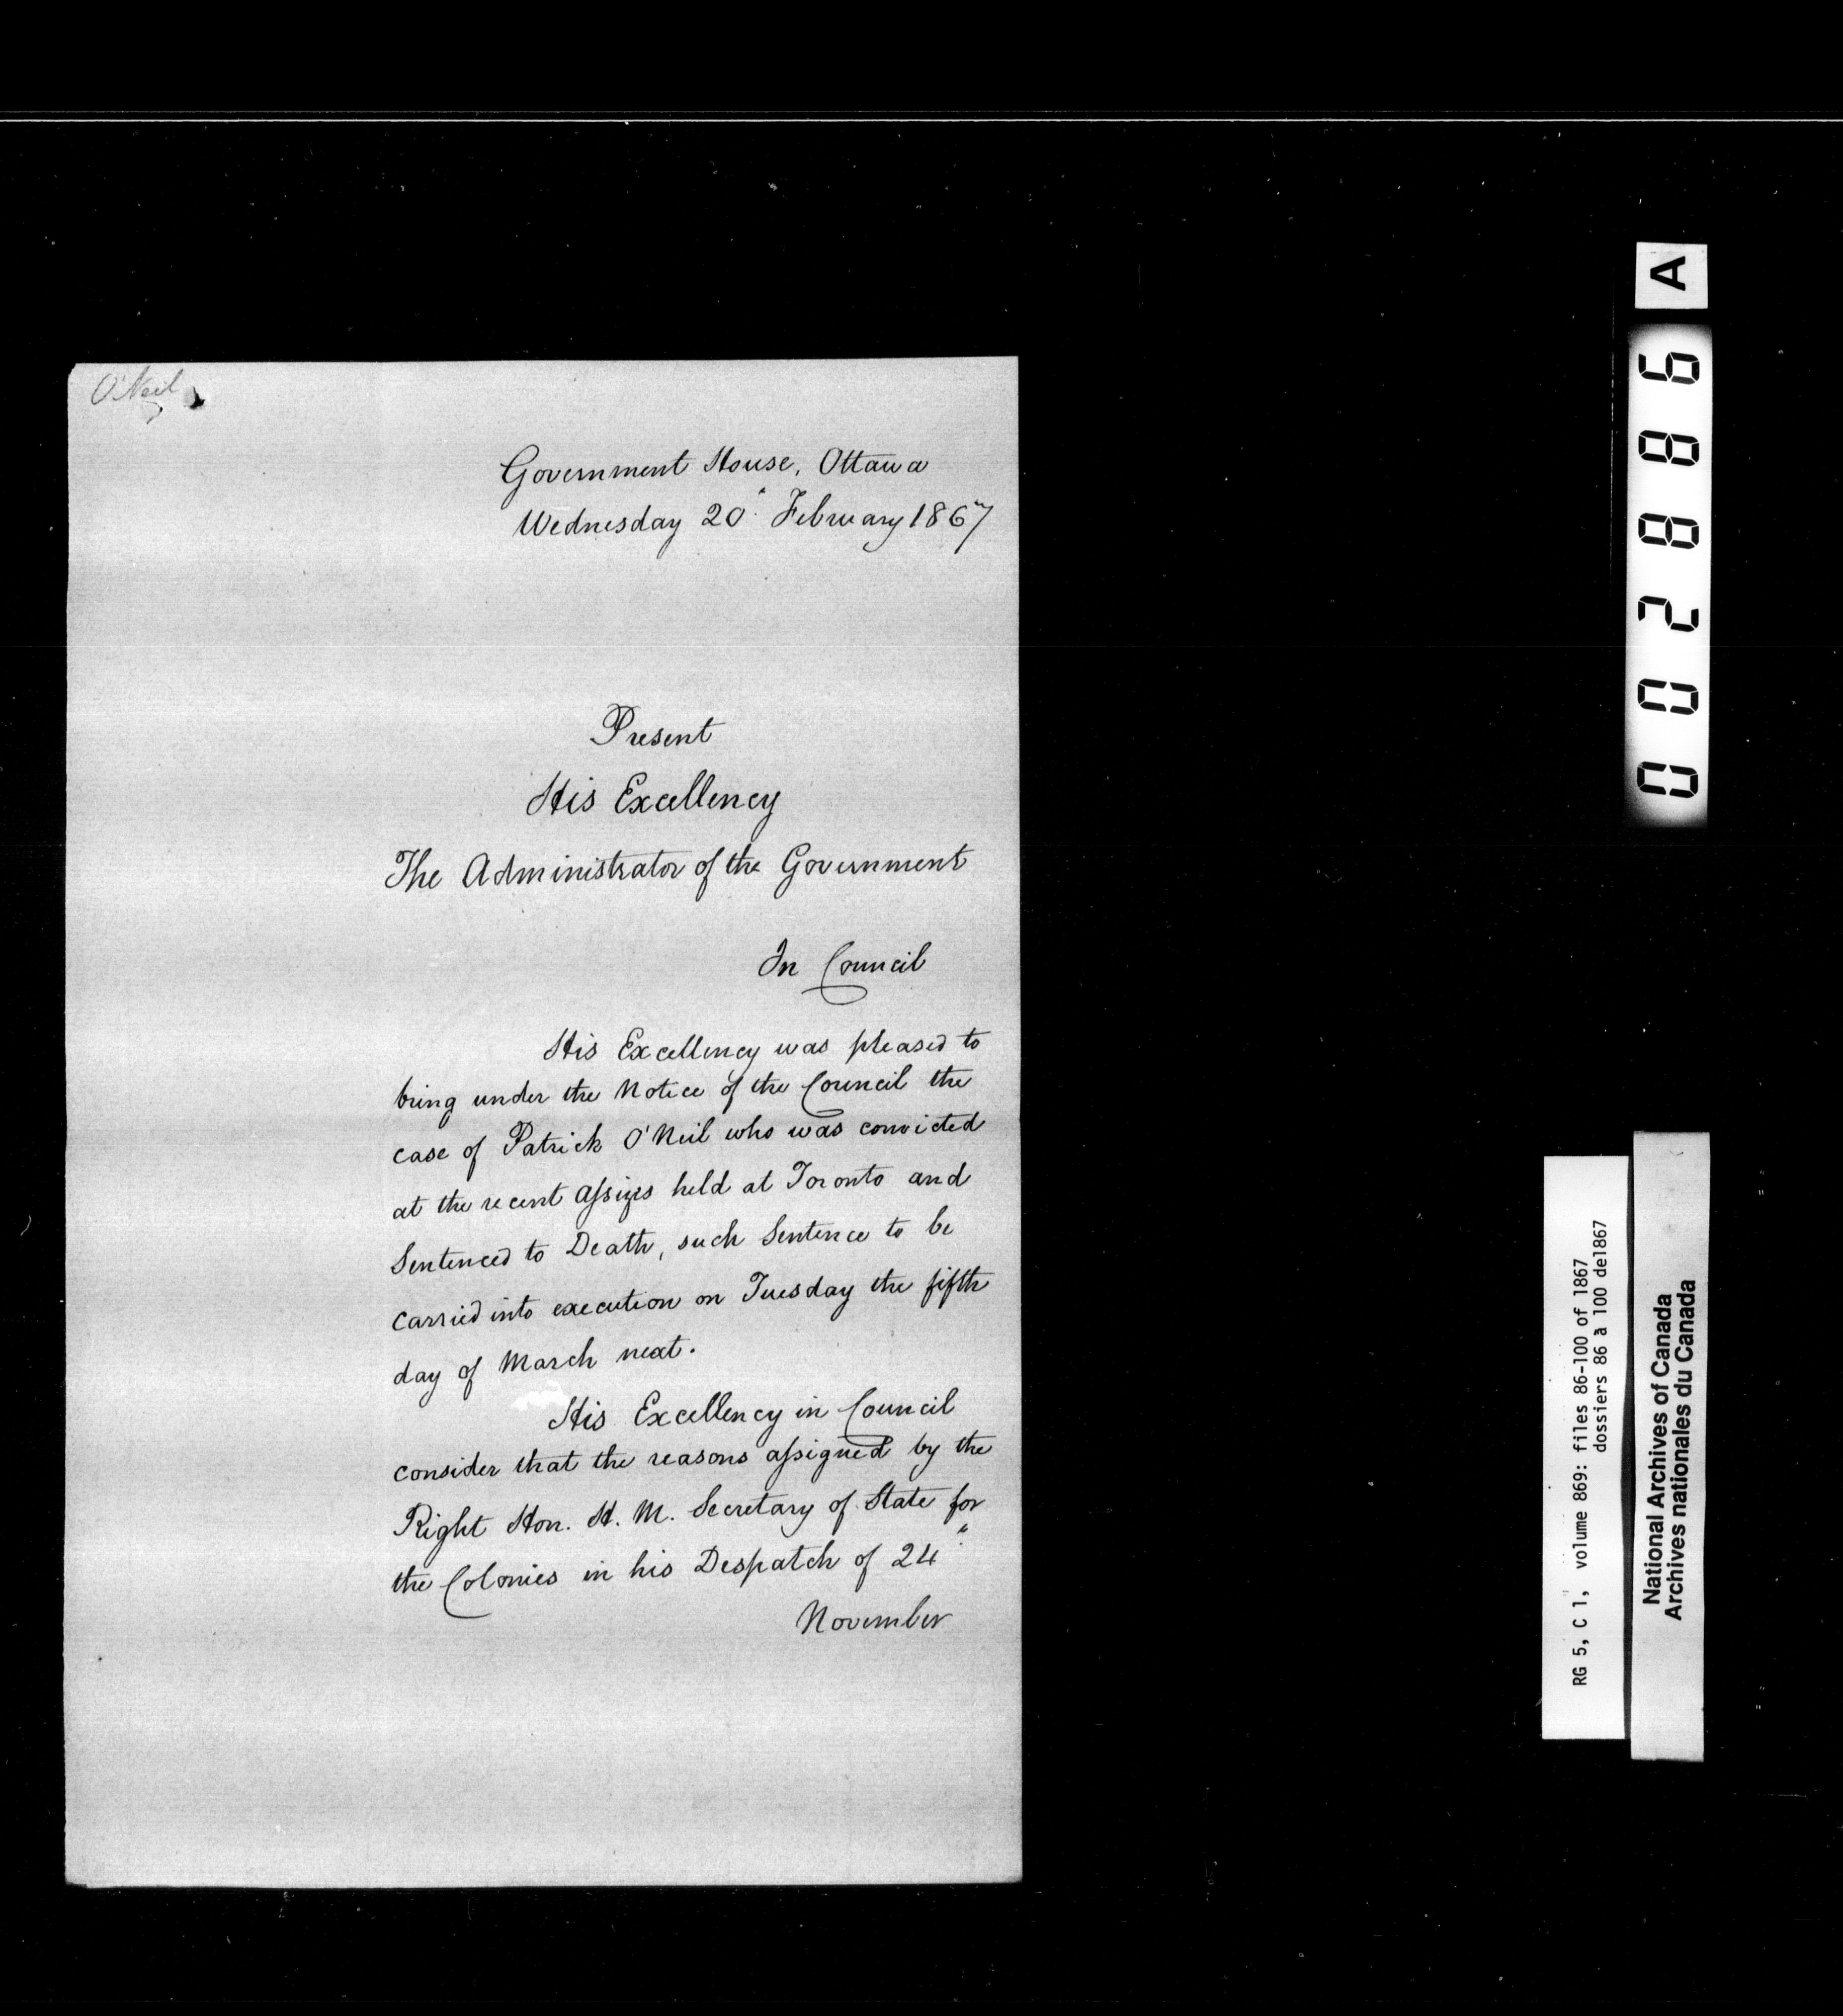 O'Neil
Government House, Ottawa
Wednesday 20" February 1867
Present
His Excellency
The Administrator of the Government
In Council
His Excellency was pleased to
bring under the Notice of the Council the
case of Patrick O'Neil who was convicted
at the recent Assizes held at Toronto and
Sentenced to Death, such Sentence to be
carried into execution on Tuesday the fifth
day of March next.
His Excellency in Council
consider that the reasons assigned by the
Right Hon. H. M. Secretary of State for
the Colonies in his Despatch of 24"
November
A
002886
RG 5, C 1, volume 869: files 86-100 of 1867
dossiers 86 à 100 de1867
National Archives of Canada
Archives nationales du Canada